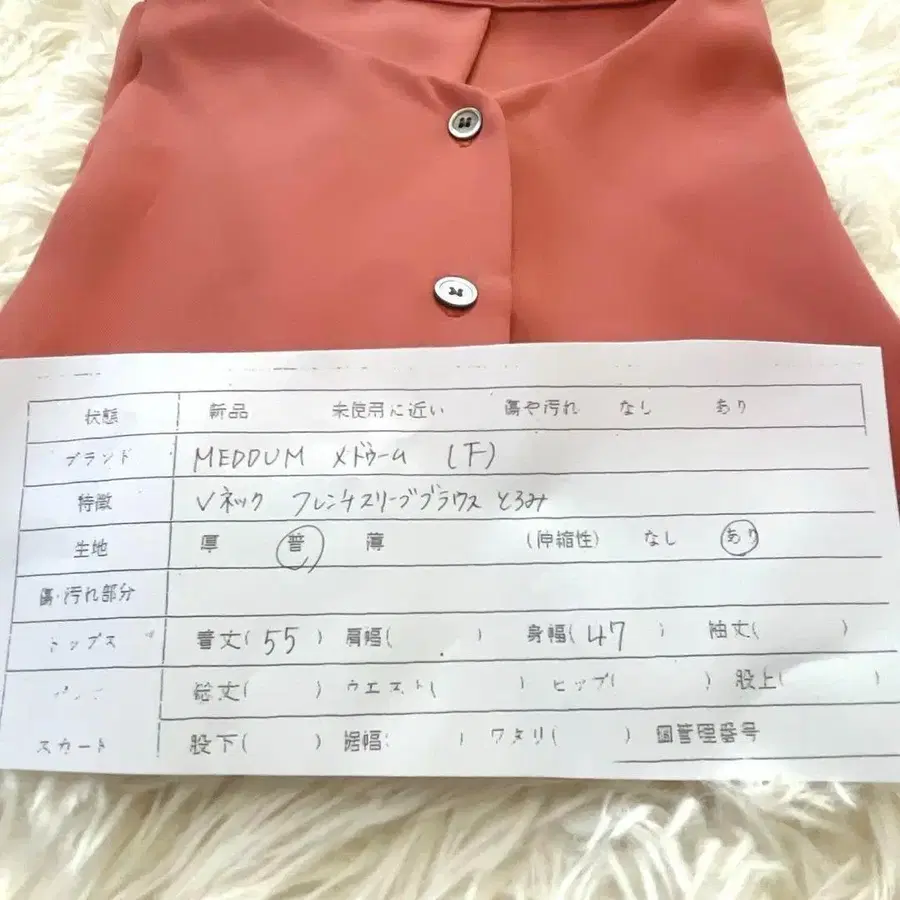 状態 新品 未使用に近い 傷や汚れ なし あり
ブランド MEDDUM メドゥーム (F)
特徴 Vネック フレンチスリーブブラウス とろみ
生地 厚 普 薄 (伸縮性) なし あり
傷・汚れ部分
トップス 着丈( 55 ) 肩幅( ) 身幅( 47 ) 袖丈( )
パンツ 総丈( ) ウエスト( ) ヒップ( ) 股上( )
スカート 股下( ) 裾幅( ) ワタリ( ) 管理番号